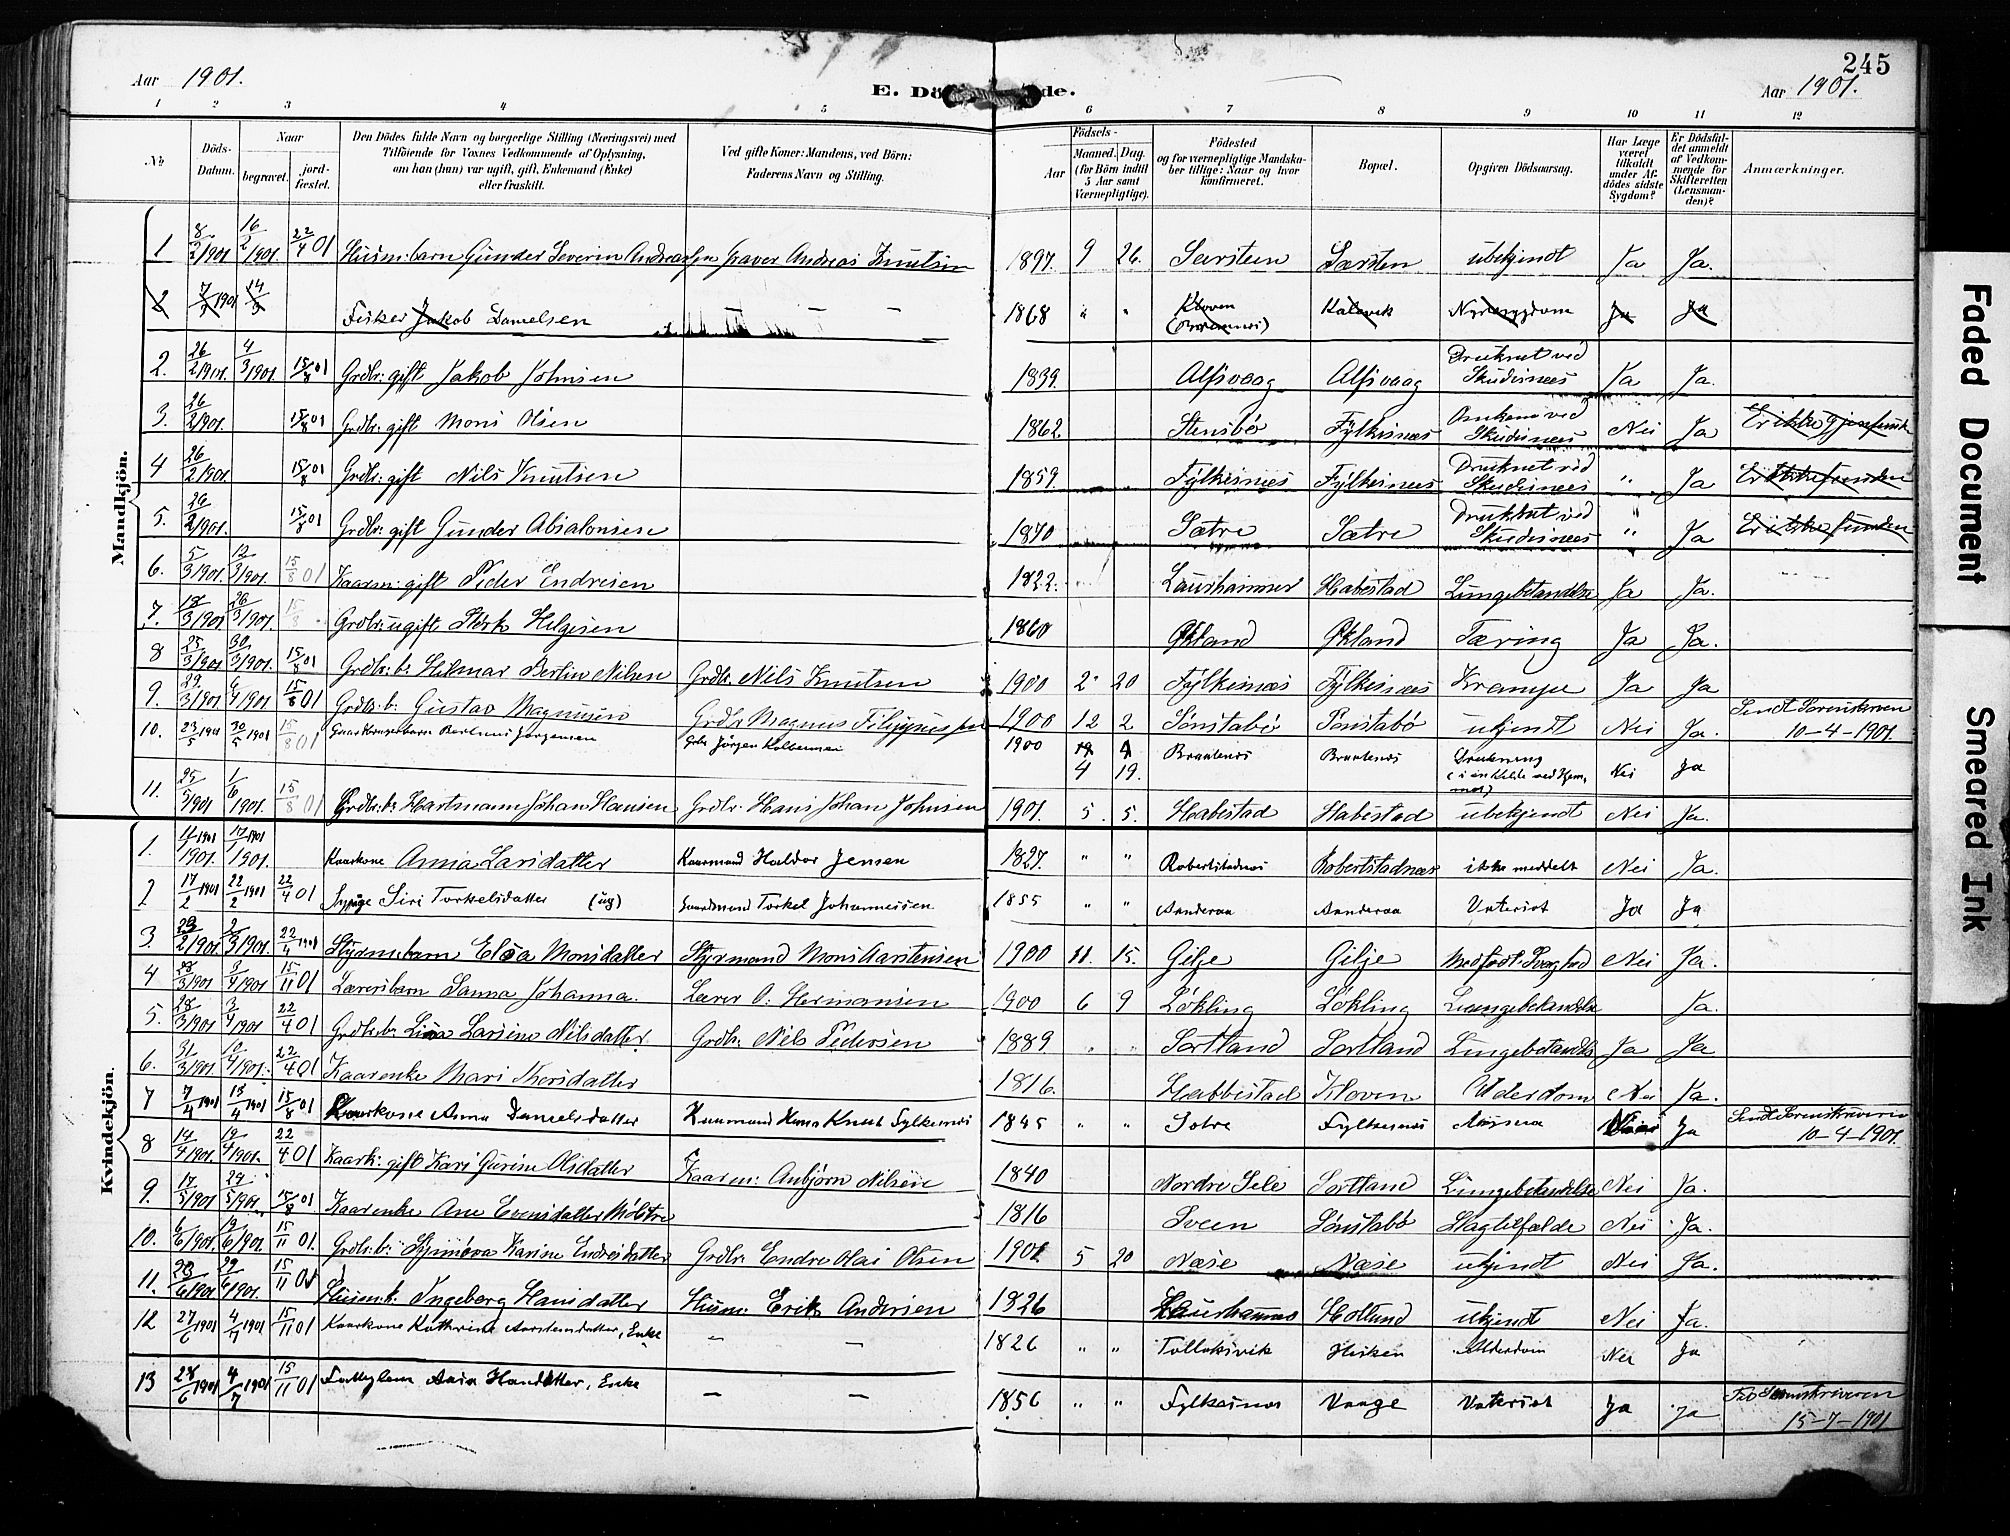 245
Aar 1901. E. Dö de. Aar 1901.
1 2 3 4 5 6 7 8 9 10 11 12
No Döds-Datum. Naar begravet. jord-fæstet. Den Dödes fulde Navn og borgerlige Stilling (Næringsvei) med Tilföiende for Voxnes Vedkommende af Oplysning, om han (hun) var ugift, gift, Enkemand (Enke) eller fraskilt. Ved gifte Koner: Mandens, ved Börn: Faderens Navn og Stilling. Födsels- Aar Maaned. Dag. (for Börn indtil 5 Aar samt Værnepligtige). Födested og for værnepligtige Mandska-ber tillige: Naar og hvor konfirmeret. Bopæl. Opgiven Dödsaarsag. Har Læge været tilkaldt under Af-dödes sidste Sygdom? Er Dödsfal-det anmeldt af Vedkom-mende for Skifteretten (Lensman-den)? Anmærkninger.
Mandkjön.
1 8/2 1901 16/2 1901 22/4 01 Husm. barn Gunder Severin Andreassen Graver Andreas Knutsen 1897 9 26. Sørsteen Sørsten ubekjendt Ja Ja.
2 7/3 1901 14/3 Fisker Jakob Danielsen — — — 1868 " " Kloven Kalevik Nyresygdom Ja Ja
2. 26/2 1901. 4/3 1901. 15/8 01 Grdbr: gift Jakob Johnsen 1839. Alfsvaag Alfsvaag Druknet ved Skudesnees Ja Ja.
3. 26/2 1901. 15/8 01 Grdbr: gift Mons Olsen 1862. Stensbö Fylkesnæs Omkom ved Skudesnees Nei Ja Er ikke gjenfunden
4 26/2 1901. 15/8 01 Grdbr: gift Nils Knutsen 1859. Fylkesnæs Fylkesnees Druknet ved Skudesnees " Ja Er ikke funden
5. 26/2 1901. 15/8 01 Grdbr: gift Gunder Absalonsen 1870 Sætre Sætre Druknet ved Skudesnees " Ja Er ikke funden
6. 5/3 1901. 12/3 1901. 15/8 01 Kaarm: gift Peder Endresen 1822. Laurhammer Habestad Lungebetændelse Ja Ja.
7. 18/3 1901 26/3 1901. 15/8 Grdbr: ugift Störk Helgesen 1860 Økland Økland Tæring Ja Ja.
8 25/3 1901 30/3 1901. 15/8 01 Grdbr. b: Hilmar Bertin Nilsen Grdbr. Nils Knutsen 1900 2 20 Fylkesnæs Fylkesnæs Krampe Ja Ja
9. 29/3 1901 6/4 1901 15/8 01 Grdb. b: Gustav Magnusen Grdbr Magnus Filippussen 1900 12 2 Tönstabö Tönstabö ukjendt Nei Ja. Sendt Sorenskriveren 10-4-1901.
10. 23/5 1901 30/5 1901 15/8 01 Gaardbrugerbarn Berthinus Jørgensen Grbr. Jörgen Kolbensen 1900 4 19. Bruntenes Bruntenes Drukning Nei Ja
11. 25/5 1901 1/6 1901. 15/8 01 Grdbr. b: Hartmann Johan Hansen Grdbr. Hans Johan Johnsen 1901. 5 5. Habestad Habestad ubekjendt Nei Ja.
Kvindekjön.
1. 1901. 1901. Kaarkone Anna Larsdatter Kaarmand Haldor Jensen 1827. " " Robertstadnæs Robertstadnæs ikke meddelt Nei Ja.
2 17/2 1901 22/2 1901 22/4 01 Sypige Siri Torkelsdatter (ug) Gaardmand Torkel Johannessen 1855 " " Aanderaa Aanderaa Vatersot Ja Ja
3. 23/2 1901 2/3 1901. 22/4 1901 Styrm. barn Elsa Monsdatter Styrmand Mons Karstensen 1900 11. 15. Gilje Gilje Medfødt Svaghed Nei Ja.
4 23/3 1901 3/4 1901 15/11 01 Lærersbarn Sanna Johanna. Lærer O. Hermansen 1900 6 9 Lökling Lökling Lungebetændelse Ja.
5. 28/3 1901 3/4 1901 22/4 01 Grdbr. b: Lina Larsine Nilsdatter Grdbr: Nils Pedersen 1889 " " Sortland Sortland Lungebetændelse Ja Ja
6. 31/3 1901. 10/4 1901. 22/4 01 Kaarenke Mari Thorsdatter 1816. Habbestad Kloven Alderdom Nei Ja.
7 7/4 1901 13/4 1901 15/8 01 Kaarkone Anna Danielsdatter Kaarmand Hans Knut Fylkesnes 1845 " " Sotre Fylkesnæs Nei Ja Sendt Sorenskriveren 10-4-1901.
8 14/4 1901. 19/4 1901. 22/4 01 Kaark: gift Kari Gurine Olsdatter Kaarm: Anbjørn Nilsen 1840 Nordre Sele Sortland Lungebetændelse Nei Ja.
9. 17/5 1901 24/5 1901. 15/8 01 Kaarenke Ane Evensdatter Möstre 1816 Sveen Tönstabö Slagtilfælde Nei Ja.
10. 6/6 1901. 12/6 1901. 15/11 01. Grdbr. b: Synnöva Karine Endresdatter Grdbr. Endre Olai Olsen 1901. 5 20 Næse Næse ukjendt Nei Ja.
11. 23/6 1901 29/6 1901. 15/11 01 Husm. k. Ingeborg Hansdatter Husm: Erik Andersen 1826 Laurhammer Hollund ukjendt Nei Ja.
12 27/6 1901 4/7 1901 15/11 01 Kaarkone Kathrine Aarstensdatter, Enke — — 1826 " " Tolleksvik Hisken Alderdom Nei Ja
13 28/6 1901 4/7 1901 15/11 01 Fattiglem Ania Hansdatter, Enke — — 1856 " " Fylkesnæs Vaage Vatersot Ja Ja Til Sorenskriveren 15-7-1901
Faded Document
Smeared Ink